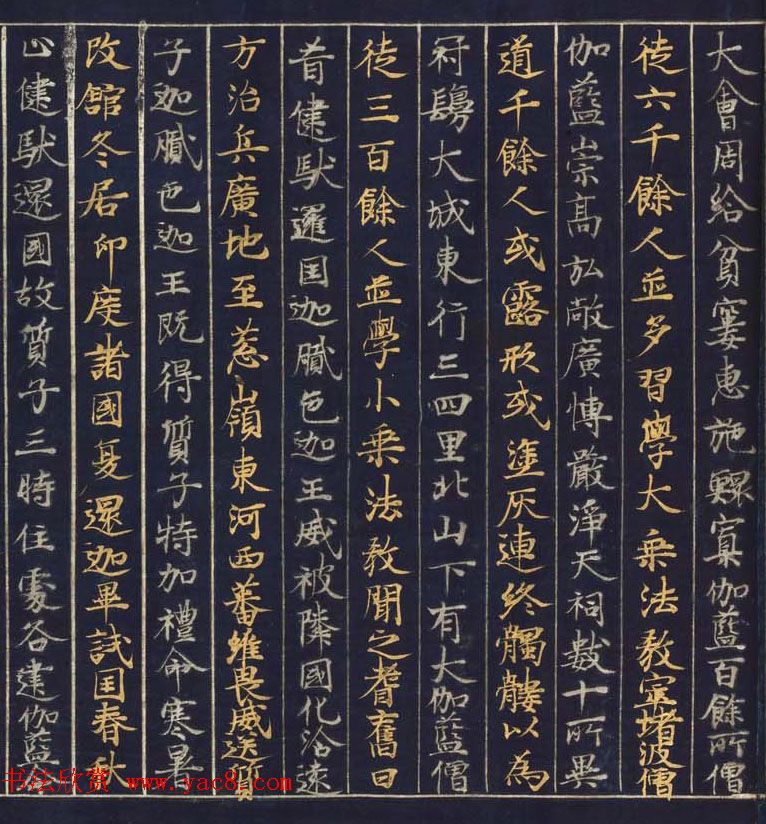 大會周給貧窶惠施鰥寡伽藍百餘所僧
徒六千餘人並多習學大乘法教窣堵波僧
伽藍崇高弘敞廣博嚴淨天祠數十所異
道千餘人或露形或塗灰連絡髑髏以為
冠鬘大城東行三四里北山下有大伽藍僧
徒三百餘人並學小乘法教聞之耆舊曰
昔健馱邏國迦膩色迦王威被隣國化洽遠
方治兵廣地至葱嶺東河西蕃維畏威送質
子迦膩色迦王既得質子特加禮命寒暑
改館冬居印度諸國夏還迦畢試國春秋
止健馱邏國故質子三時住處各建伽藍
书法欣赏 www.yac8.com